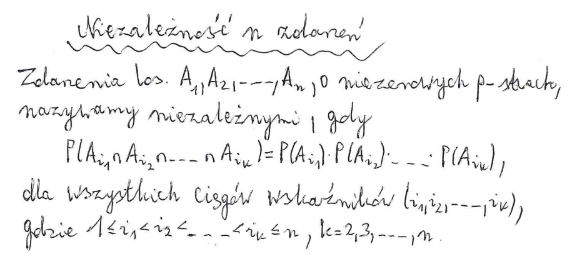 Niezależność n zdarzeń
Zdarzenia los. A₁, A₂, ---, Aₙ, o niezerowych p-stwach,
nazywamy niezależnymi, gdy
P(A_{i₁} ∩ A_{i₂} ∩ --- ∩ A_{iₖ}) = P(A_{i₁})·P(A_{i₂})· ---· P(A_{iₖ}),
dla wszystkich ciągów wskaźników (i₁, i₂, ---, iₖ),
gdzie 1 ≤ i₁ < i₂ < --- < iₖ ≤ n, k = 2, 3, ---, n.